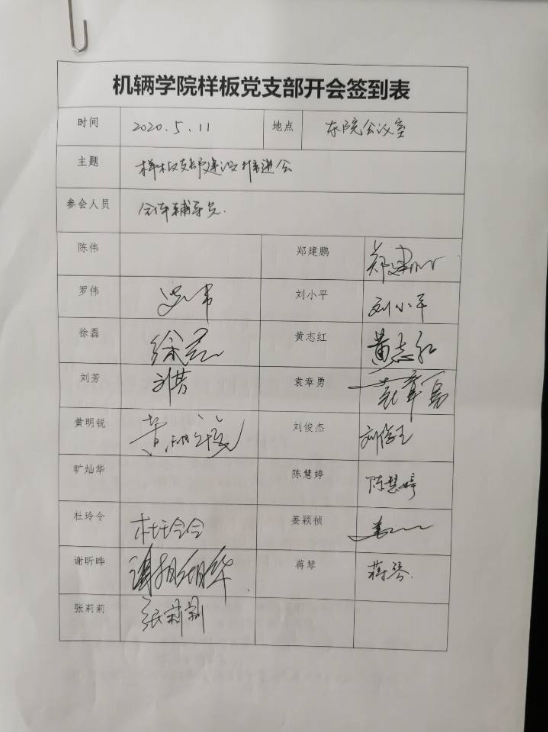 机辆学院样板党支部开会签到表
时间 2020.5.11 地点 东院会议室
主题 样板支部建设推进会
参会人员 全体辅导员.
陈伟 郑建鹏 郑建鹏
罗伟 罗伟 刘小平 刘小平
徐磊 徐磊 黄志红 黄志红
刘芳 刘芳 袁章勇 袁章勇
黄明锐 黄明锐 刘俊杰 刘俊杰
旷灿华 陈慧婷 陈慧婷
杜玲令 杜令令 姜颖桢 姜
谢昕晔 蒋琴 蒋琴
张莉莉 张莉莉